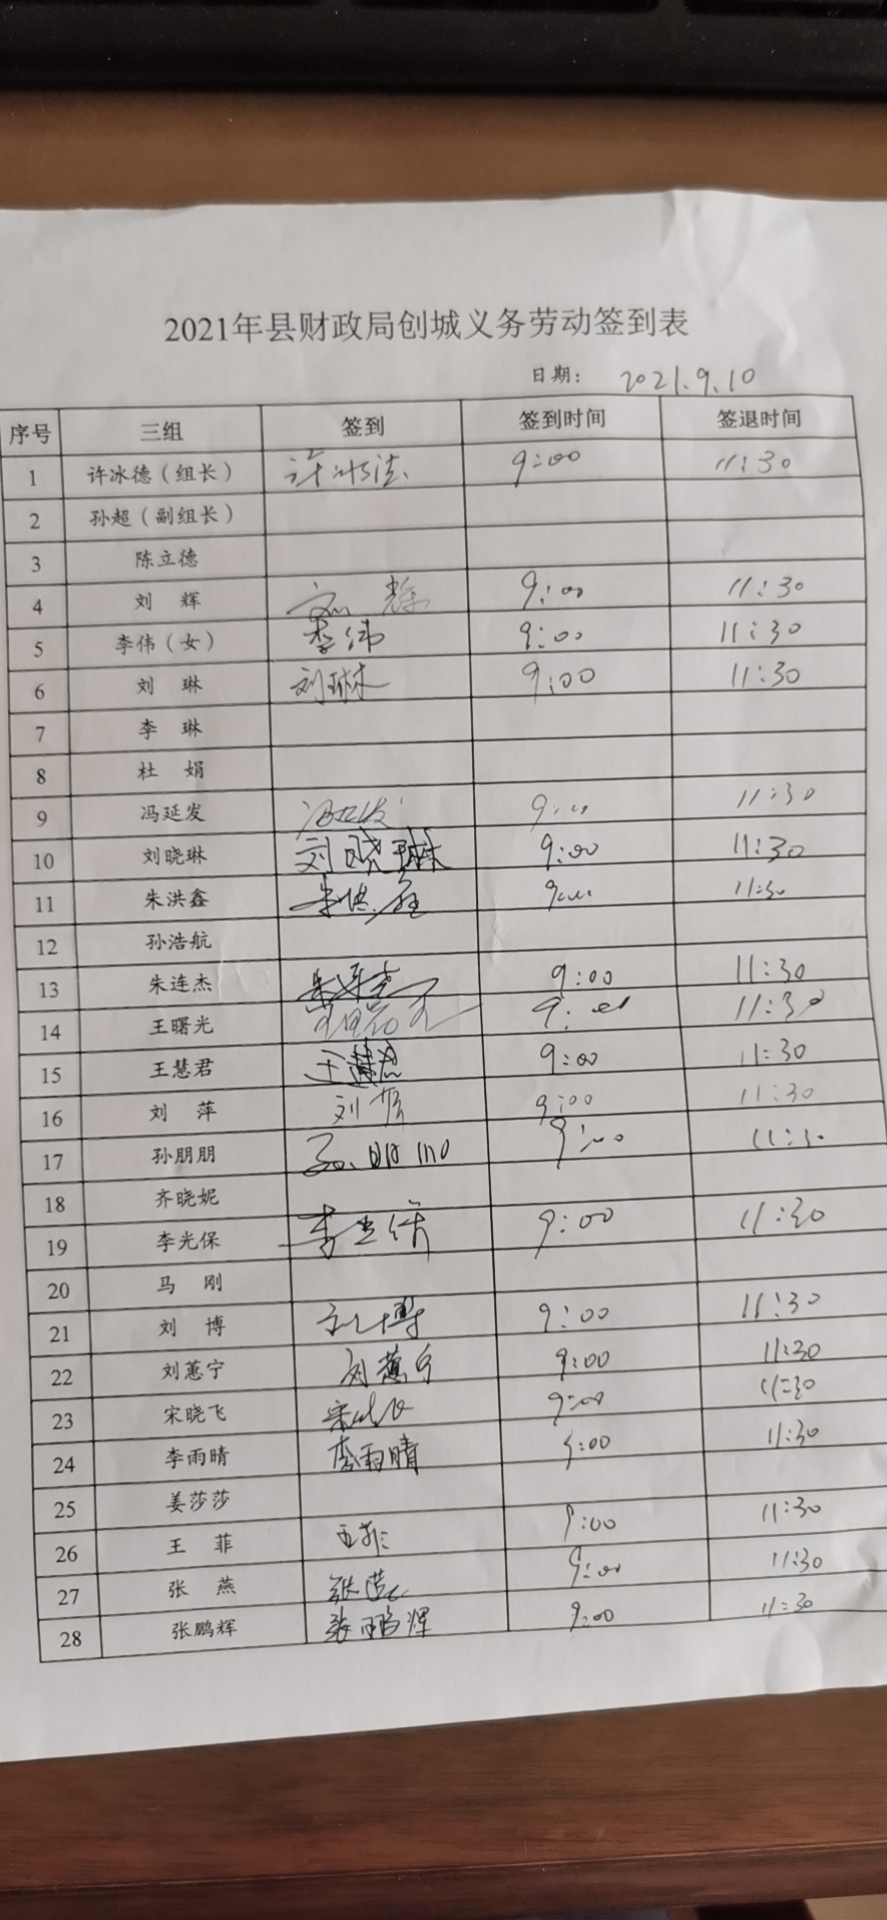 2021年县财政局创城义务劳动签到表
日期： 2021.9.10
序号 三组 签到 签到时间 签退时间
1 许冰德（组长） 许冰德 9:00 11:30
2 孙超（副组长）
3 陈立德
4 刘 辉 刘 辉 9:00 11:30
5 李伟（女） 李伟 9:00 11:30
6 刘 琳 刘琳 9:00 11:30
7 李 琳
8 杜 娟
9 冯延发 冯延发 9:00 11:30
10 刘晓琳 刘晓琳 9:00 11:30
11 朱洪鑫 朱洪鑫 9:00 11:30
12 孙浩航
13 朱连杰 朱连杰 9:00 11:30
14 王曙光 9:00 11:30
15 王慧君 王慧君 9:00 11:30
16 刘 萍 刘萍 9:00 11:30
17 孙朋朋 孙朋朋 9:00 11:30
18 齐晓妮
19 李光保 李光保 9:00 11:30
20 马 刚
21 刘 博 刘博 9:00 11:30
22 刘蕙宁 刘蕙宁 9:00 11:30
23 宋晓飞 宋晓飞 9:00 11:30
24 李雨晴 李雨晴 9:00 11:30
25 姜莎莎
26 王 菲 王菲 9:00 11:30
27 张 燕 张燕 9:00 11:30
28 张鹏辉 张鹏辉 9:00 11:30